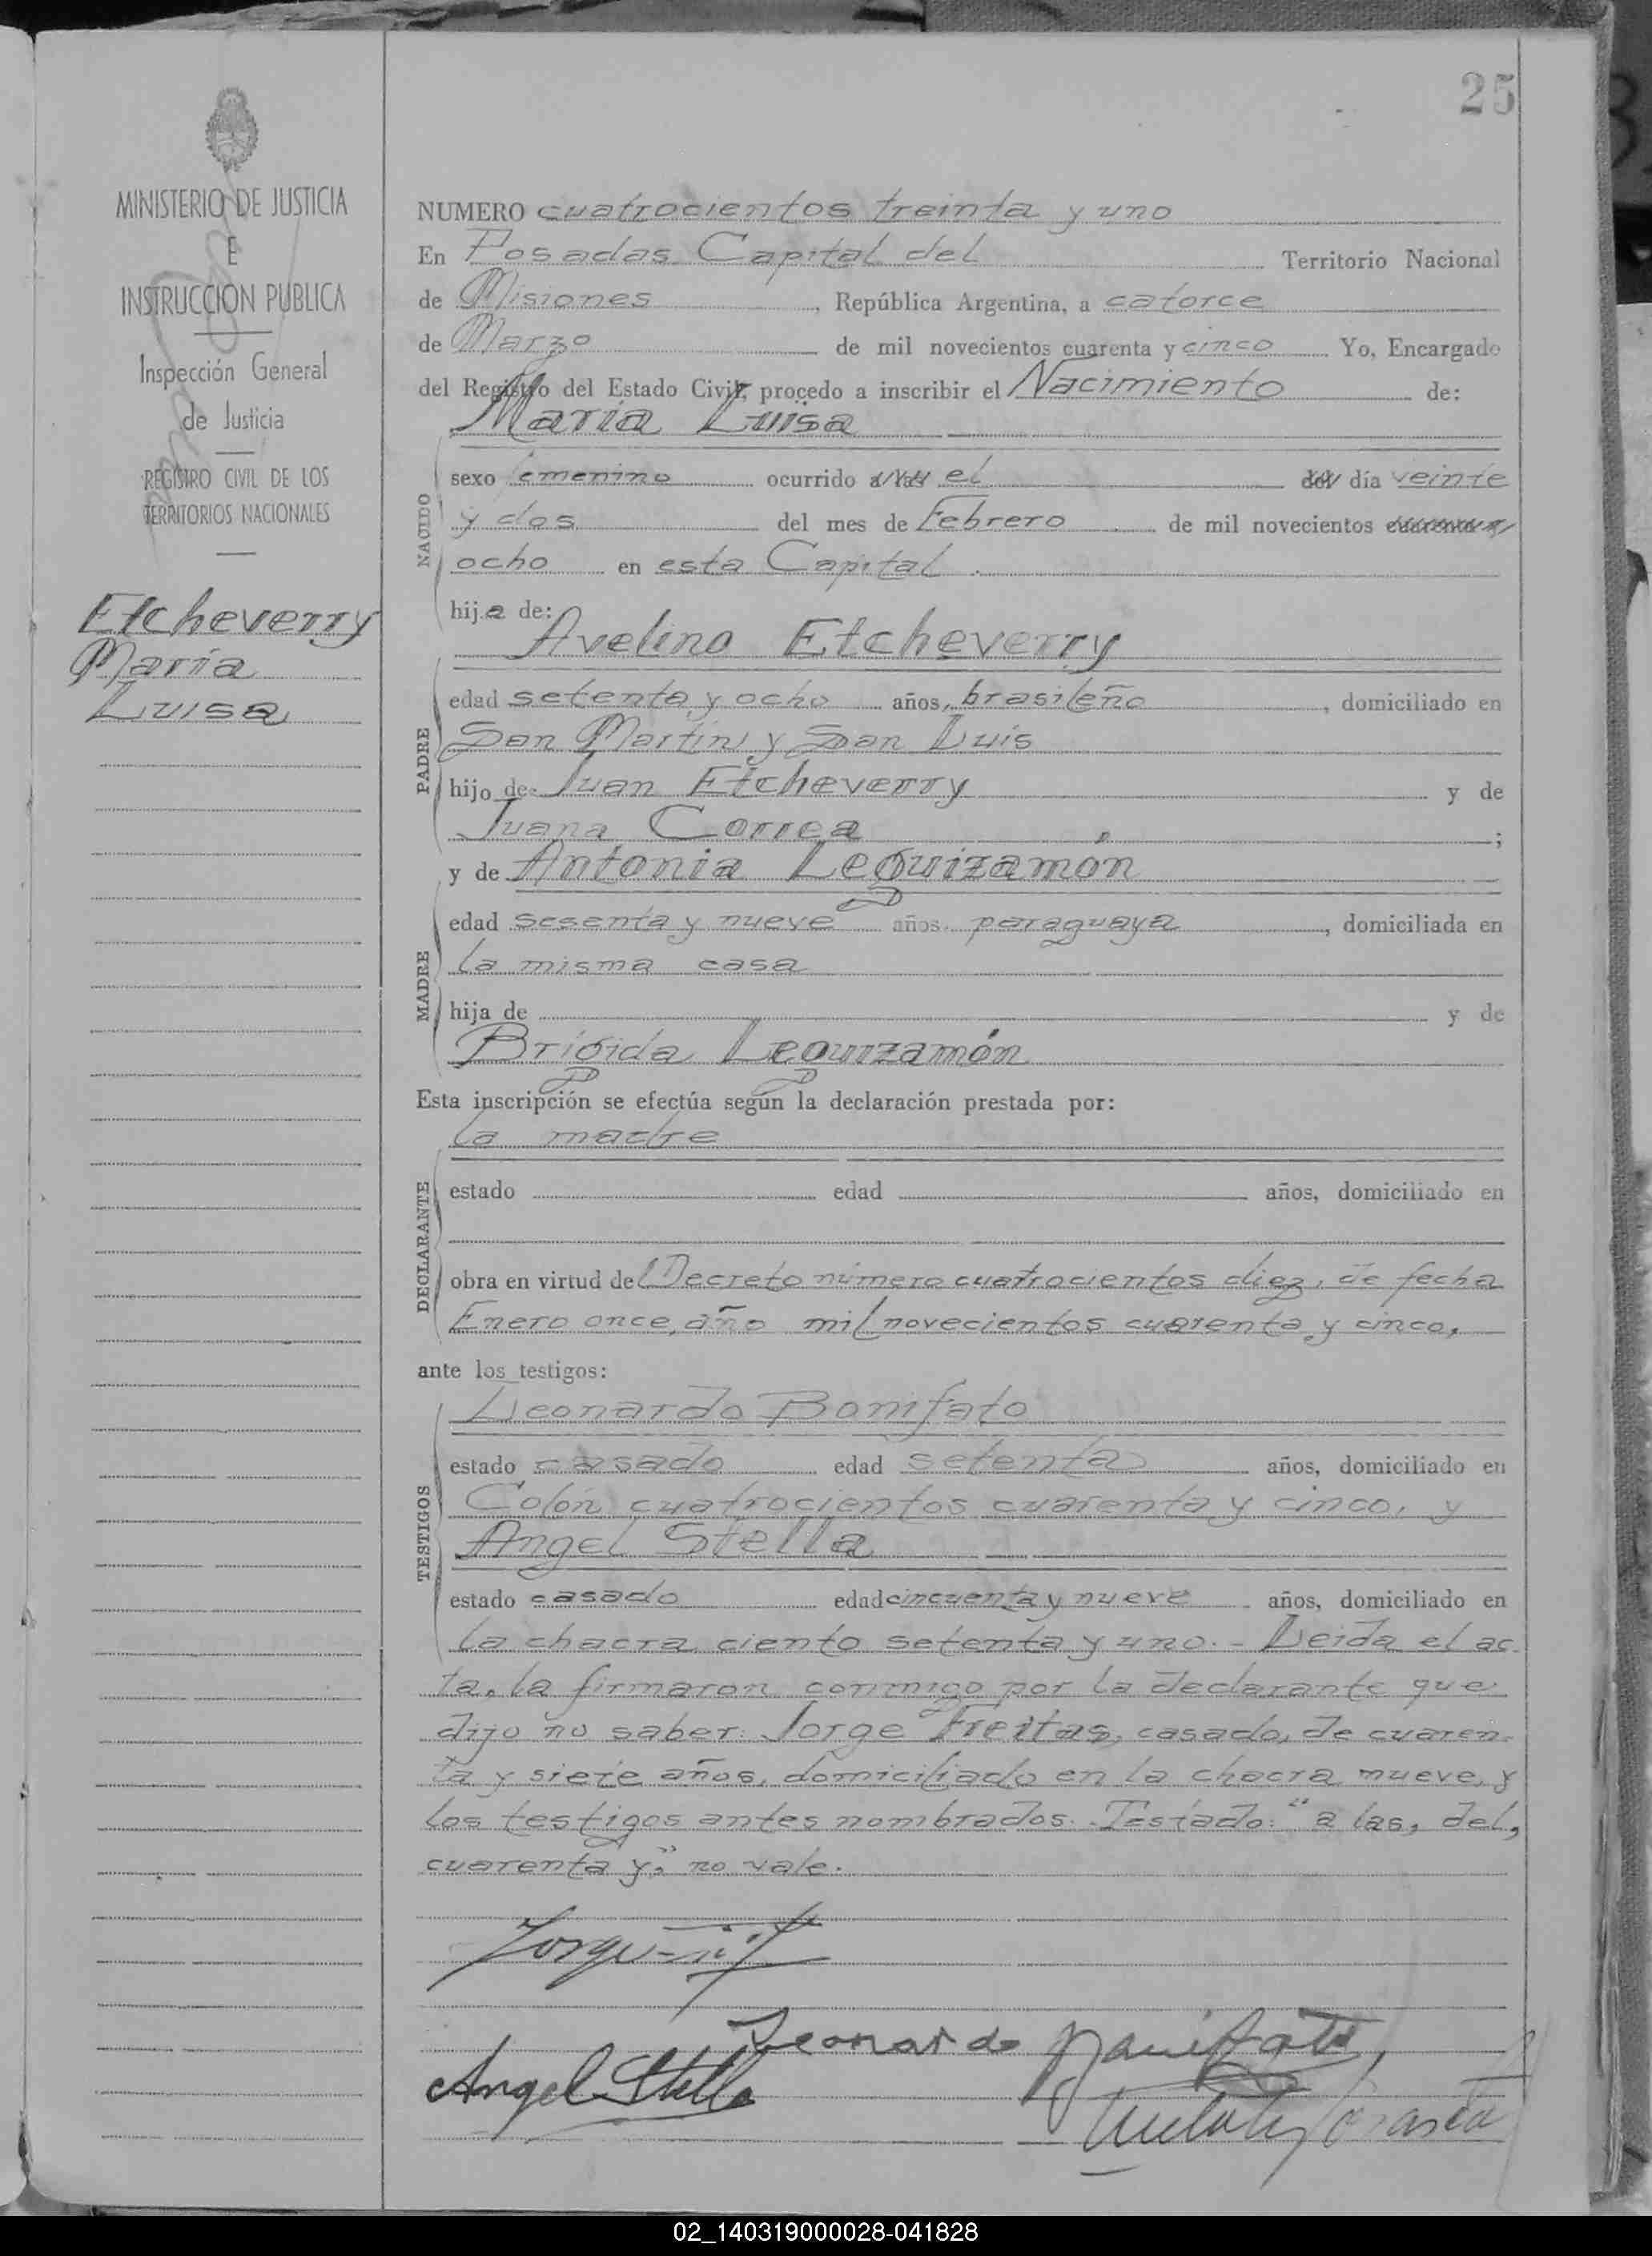 25
MINISTERIO DE JUSTICIA
E
INSTRUCCION PUBLICA
Inspección General
de Justicia
REGISTRO CIVIL DE LOS
TERRITORIOS NACIONALES
Etcheverry
María
Luisa
NUMERO cuatrocientos treinta y uno
En Posadas Capital del Territorio Nacional
de Misiones, República Argentina, a catorce
de Marzo de mil novecientos cuarenta y cinco Yo, Encargado
del Registro del Estado Civil, procedo a inscribir el Nacimiento de:
María Luisa
NACIDO
sexo femenino ocurrido a las el del día veinte
y dos del mes de Febrero de mil novecientos cuarenta y
ocho en esta Capital.
hija de:
Avelino Etcheverry
PADRE
edad setenta y ocho años, brasileño, domiciliado en
San Martín y San Luis
hijo de Juan Etcheverry y de
Juana Correa;
y de Antonia Leguizamón
MADRE
edad sesenta y nueve años, paraguaya, domiciliada en
la misma casa
hija de y de
Brígida Leguizamón
Esta inscripción se efectúa según la declaración prestada por:
la madre
DECLARANTE
estado edad años, domiciliado en
obra en virtud de Decreto número cuatrocientos diez, de fecha
Enero once, año mil novecientos cuarenta y cinco,
ante los testigos:
TESTIGOS
Leonardo Bonifato
estado casado edad setenta años, domiciliado en
Colón cuatrocientos cuarenta y cinco, y
Angel Stella
estado casado edad cincuenta y nueve años, domiciliado en
la chacra ciento setenta y uno.- Leida el ac-
ta, la firmaron conmigo por la declarante que
dijo no saber: Jorge Freitas, casado, de cuaren-
ta y siete años, domiciliado en la chacra nueve, y
los testigos antes nombrados.-Testado: "a las, del,
cuarenta y": no vale.
Leonardo Bonifato
Angel Stella
02_140319000028-041828